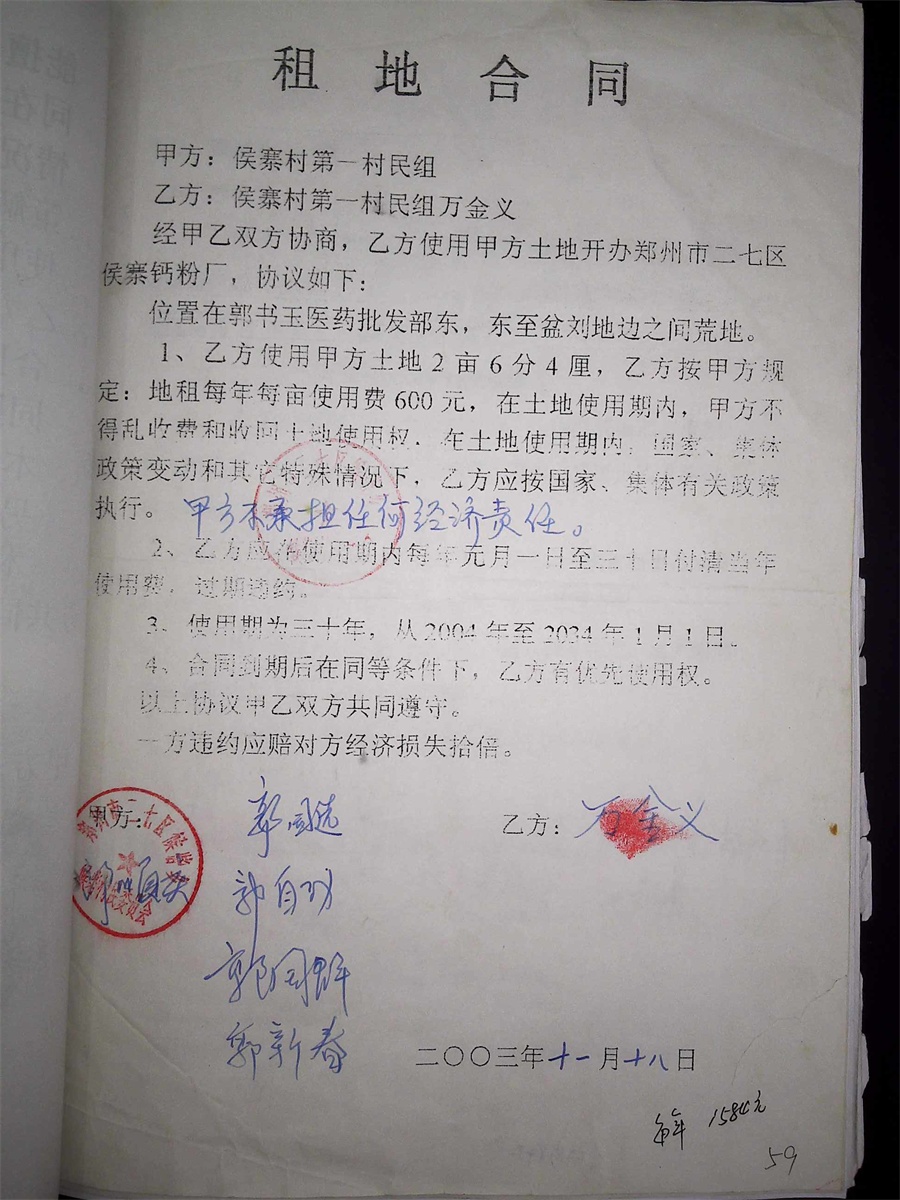 租地合同
甲方：侯寨村第一村民组
乙方：侯寨村第一村民组万金义
经甲乙双方协商，乙方使用甲方土地开办郑州市二七区
侯寨钙粉厂，协议如下：
位置在郭书玉医药批发部东，东至盆刘地边之间荒地。
1、乙方使用甲方土地2亩6分4厘，乙方按甲方规
定：地租每年每亩使用费600元，在土地使用期内，甲方不
得乱收费和收回土地使用权，在土地使用期内，国家、集体
政策变动和其它特殊情况下，乙方应按国家、集体有关政策
执行。甲方不承担任何经济责任。
2、乙方应在使用期内每年元月一日至三十日付清当年
使用费，过期违约。
3、使用期为三十年，从2004年至2034年1月1日。
4、合同到期后在同等条件下，乙方有优先使用权。
以上协议甲乙双方共同遵守。
一方违约应赔对方经济损失拾倍。
甲方： 乙方：万金义
郭自功
郭新春
二〇〇三年十一月十八日
每年 1584元
59